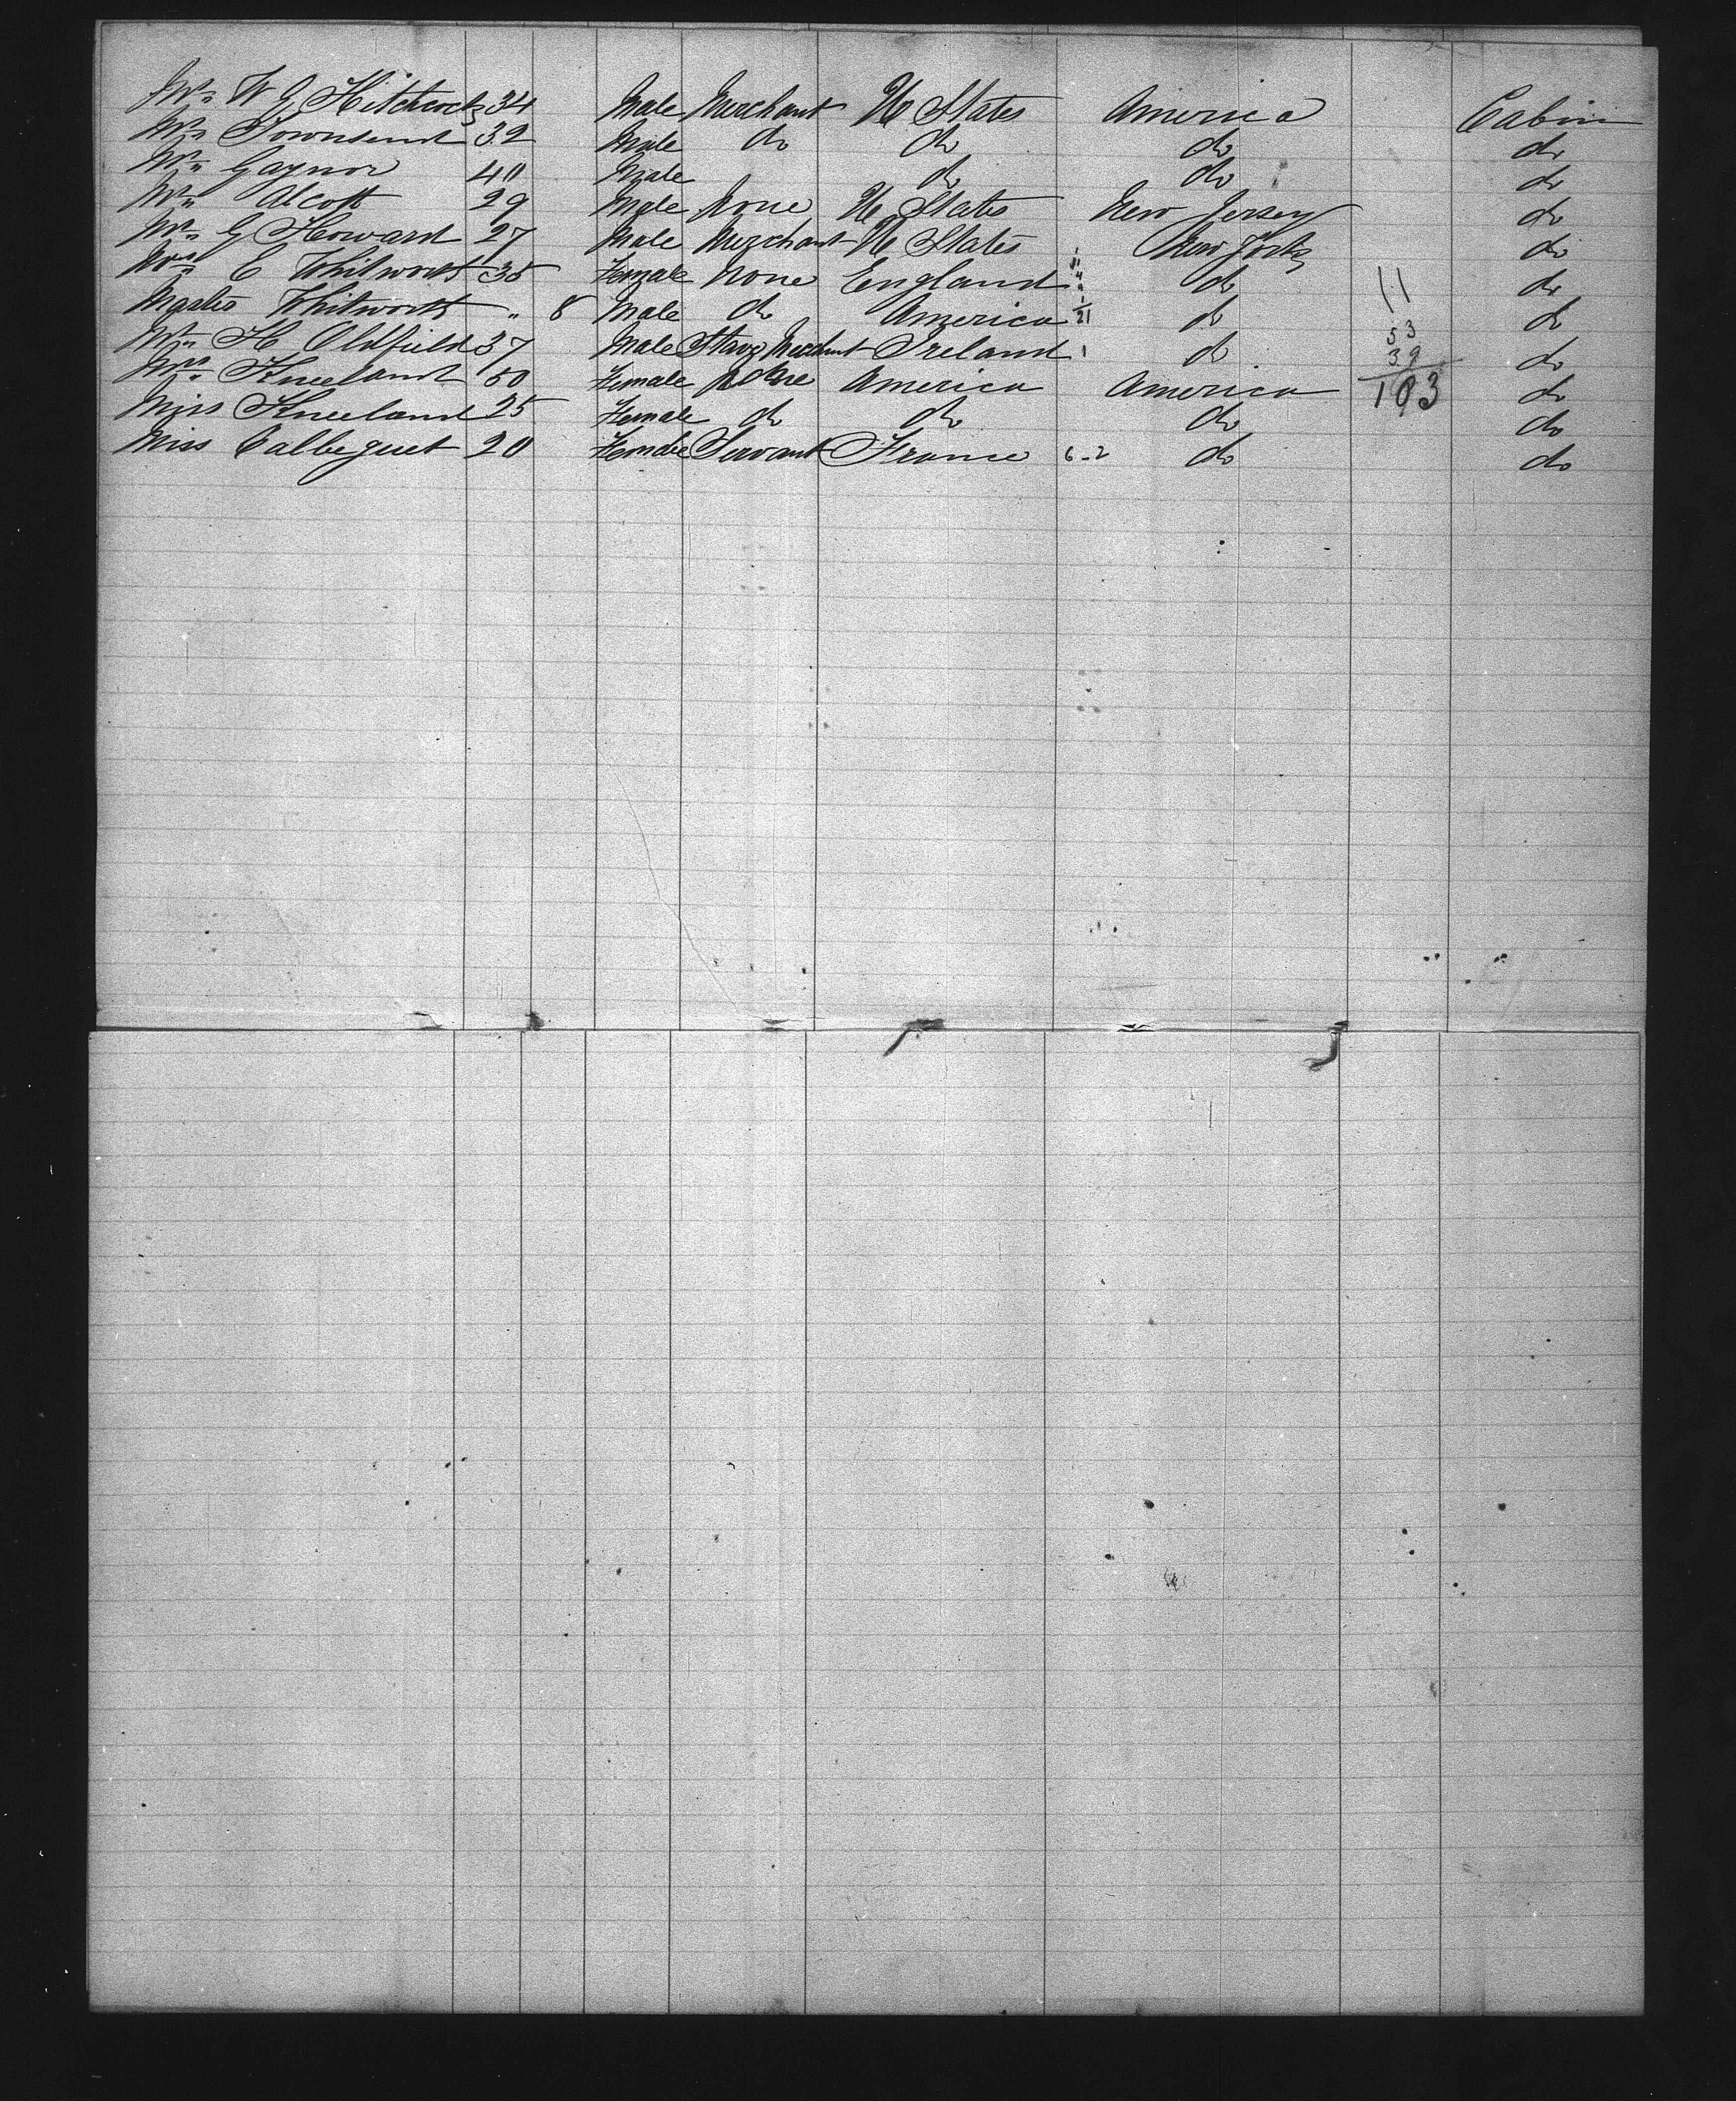 Mr W G Hitchcock 34 Male Merchant U States America Cabin
Mr Townsend 32 Male do do do do
Mr Gaynor 40 Male do do do
Mr Alcott 29 Male None U States New Jersey do
Mr G Howard 27 Male Merchant U States New York do
Mrs E Whitworth 35 Female None England do 11 do
Master Whitworth " 8 Male do America 21 do 53 do
Mr H Oldfield 37 Male Merchant Ireland 1 do 39 do
Mrs Kneeland 50 Female None America America 103 do
Miss Kneeland 25 Female do do do do
Miss Calbeguet 20 Female Servant France 6-2 do do